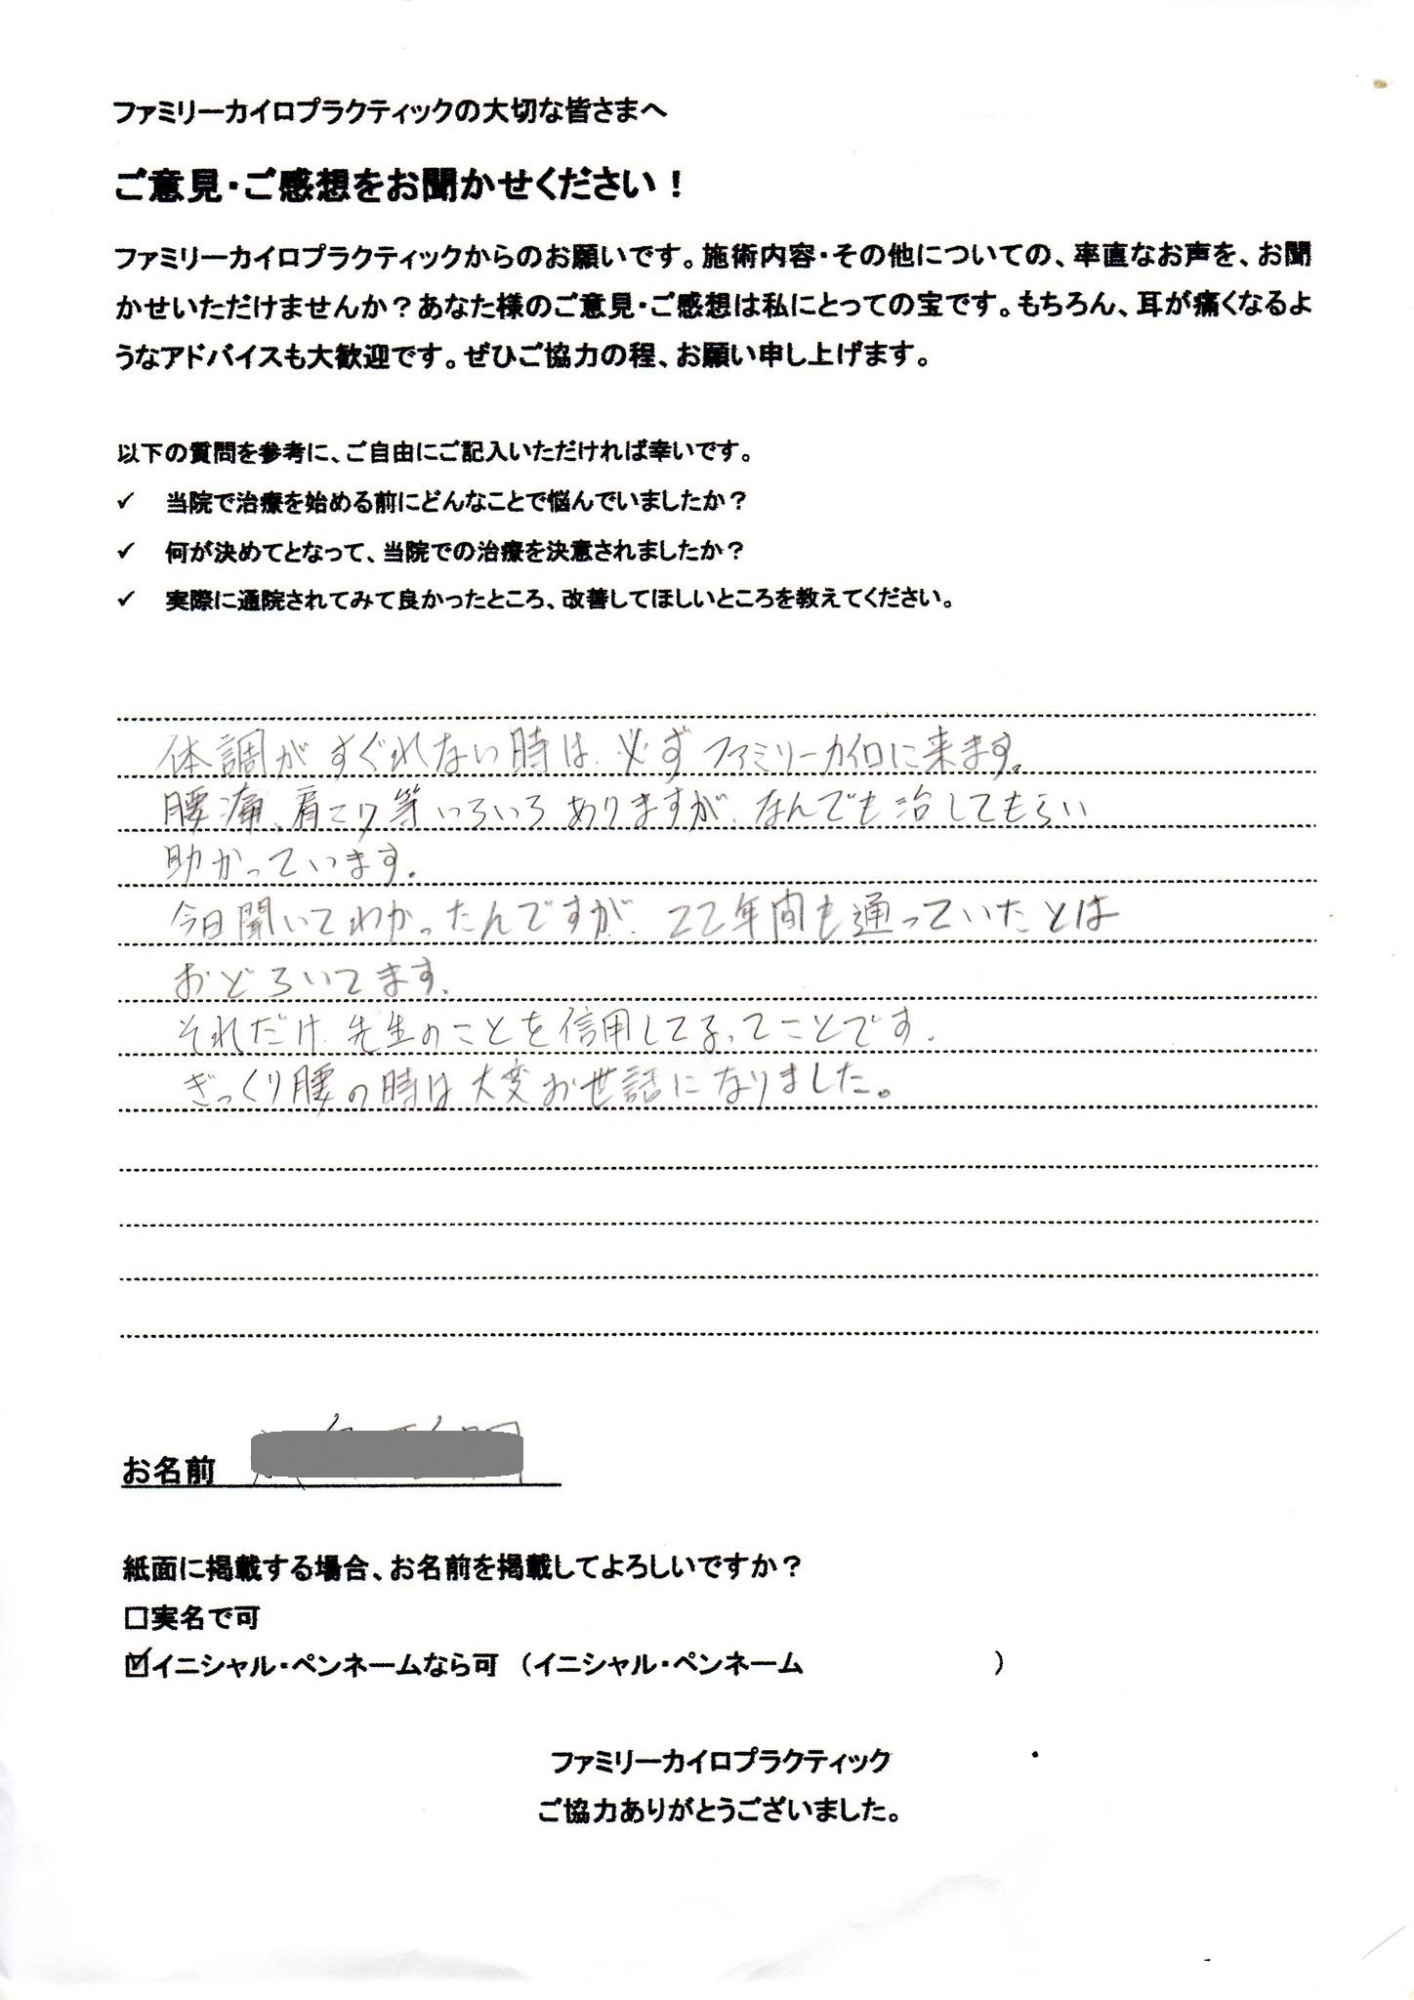 ファミリーカイロプラクティックの大切な皆さまへ
ご意見・ご感想をお聞かせください！
ファミリーカイロプラクティックからのお願いです。施術内容・その他についての、率直なお声を、お聞
かせいただけませんか？あなた様のご意見・ご感想は私にとっての宝です。もちろん、耳が痛くなるよ
うなアドバイスも大歓迎です。ぜひご協力の程、お願い申し上げます。
以下の質問を参考に、ご自由にご記入いただければ幸いです。
✓ 当院で治療を始める前にどんなことで悩んでいましたか？
✓ 何が決めてとなって、当院での治療を決意されましたか？
✓ 実際に通院されてみて良かったところ、改善してほしいところを教えてください。
体調がすぐれない時は、必ずファミリーカイロに来ます。
腰痛、肩こり等いろいろありますが、なんでも治してもらい
助かっています。
今日聞いてわかったんですが、22年間も通っていたとは
おどろいてます。
それだけ、先生のことを信用してるってことです。
ぎっくり腰の時は大変お世話になりました。
お名前
紙面に掲載する場合、お名前を掲載してよろしいですか？
□実名で可
☑イニシャル・ペンネームなら可 （イニシャル・ペンネーム ）
ファミリーカイロプラクティック
ご協力ありがとうございました。